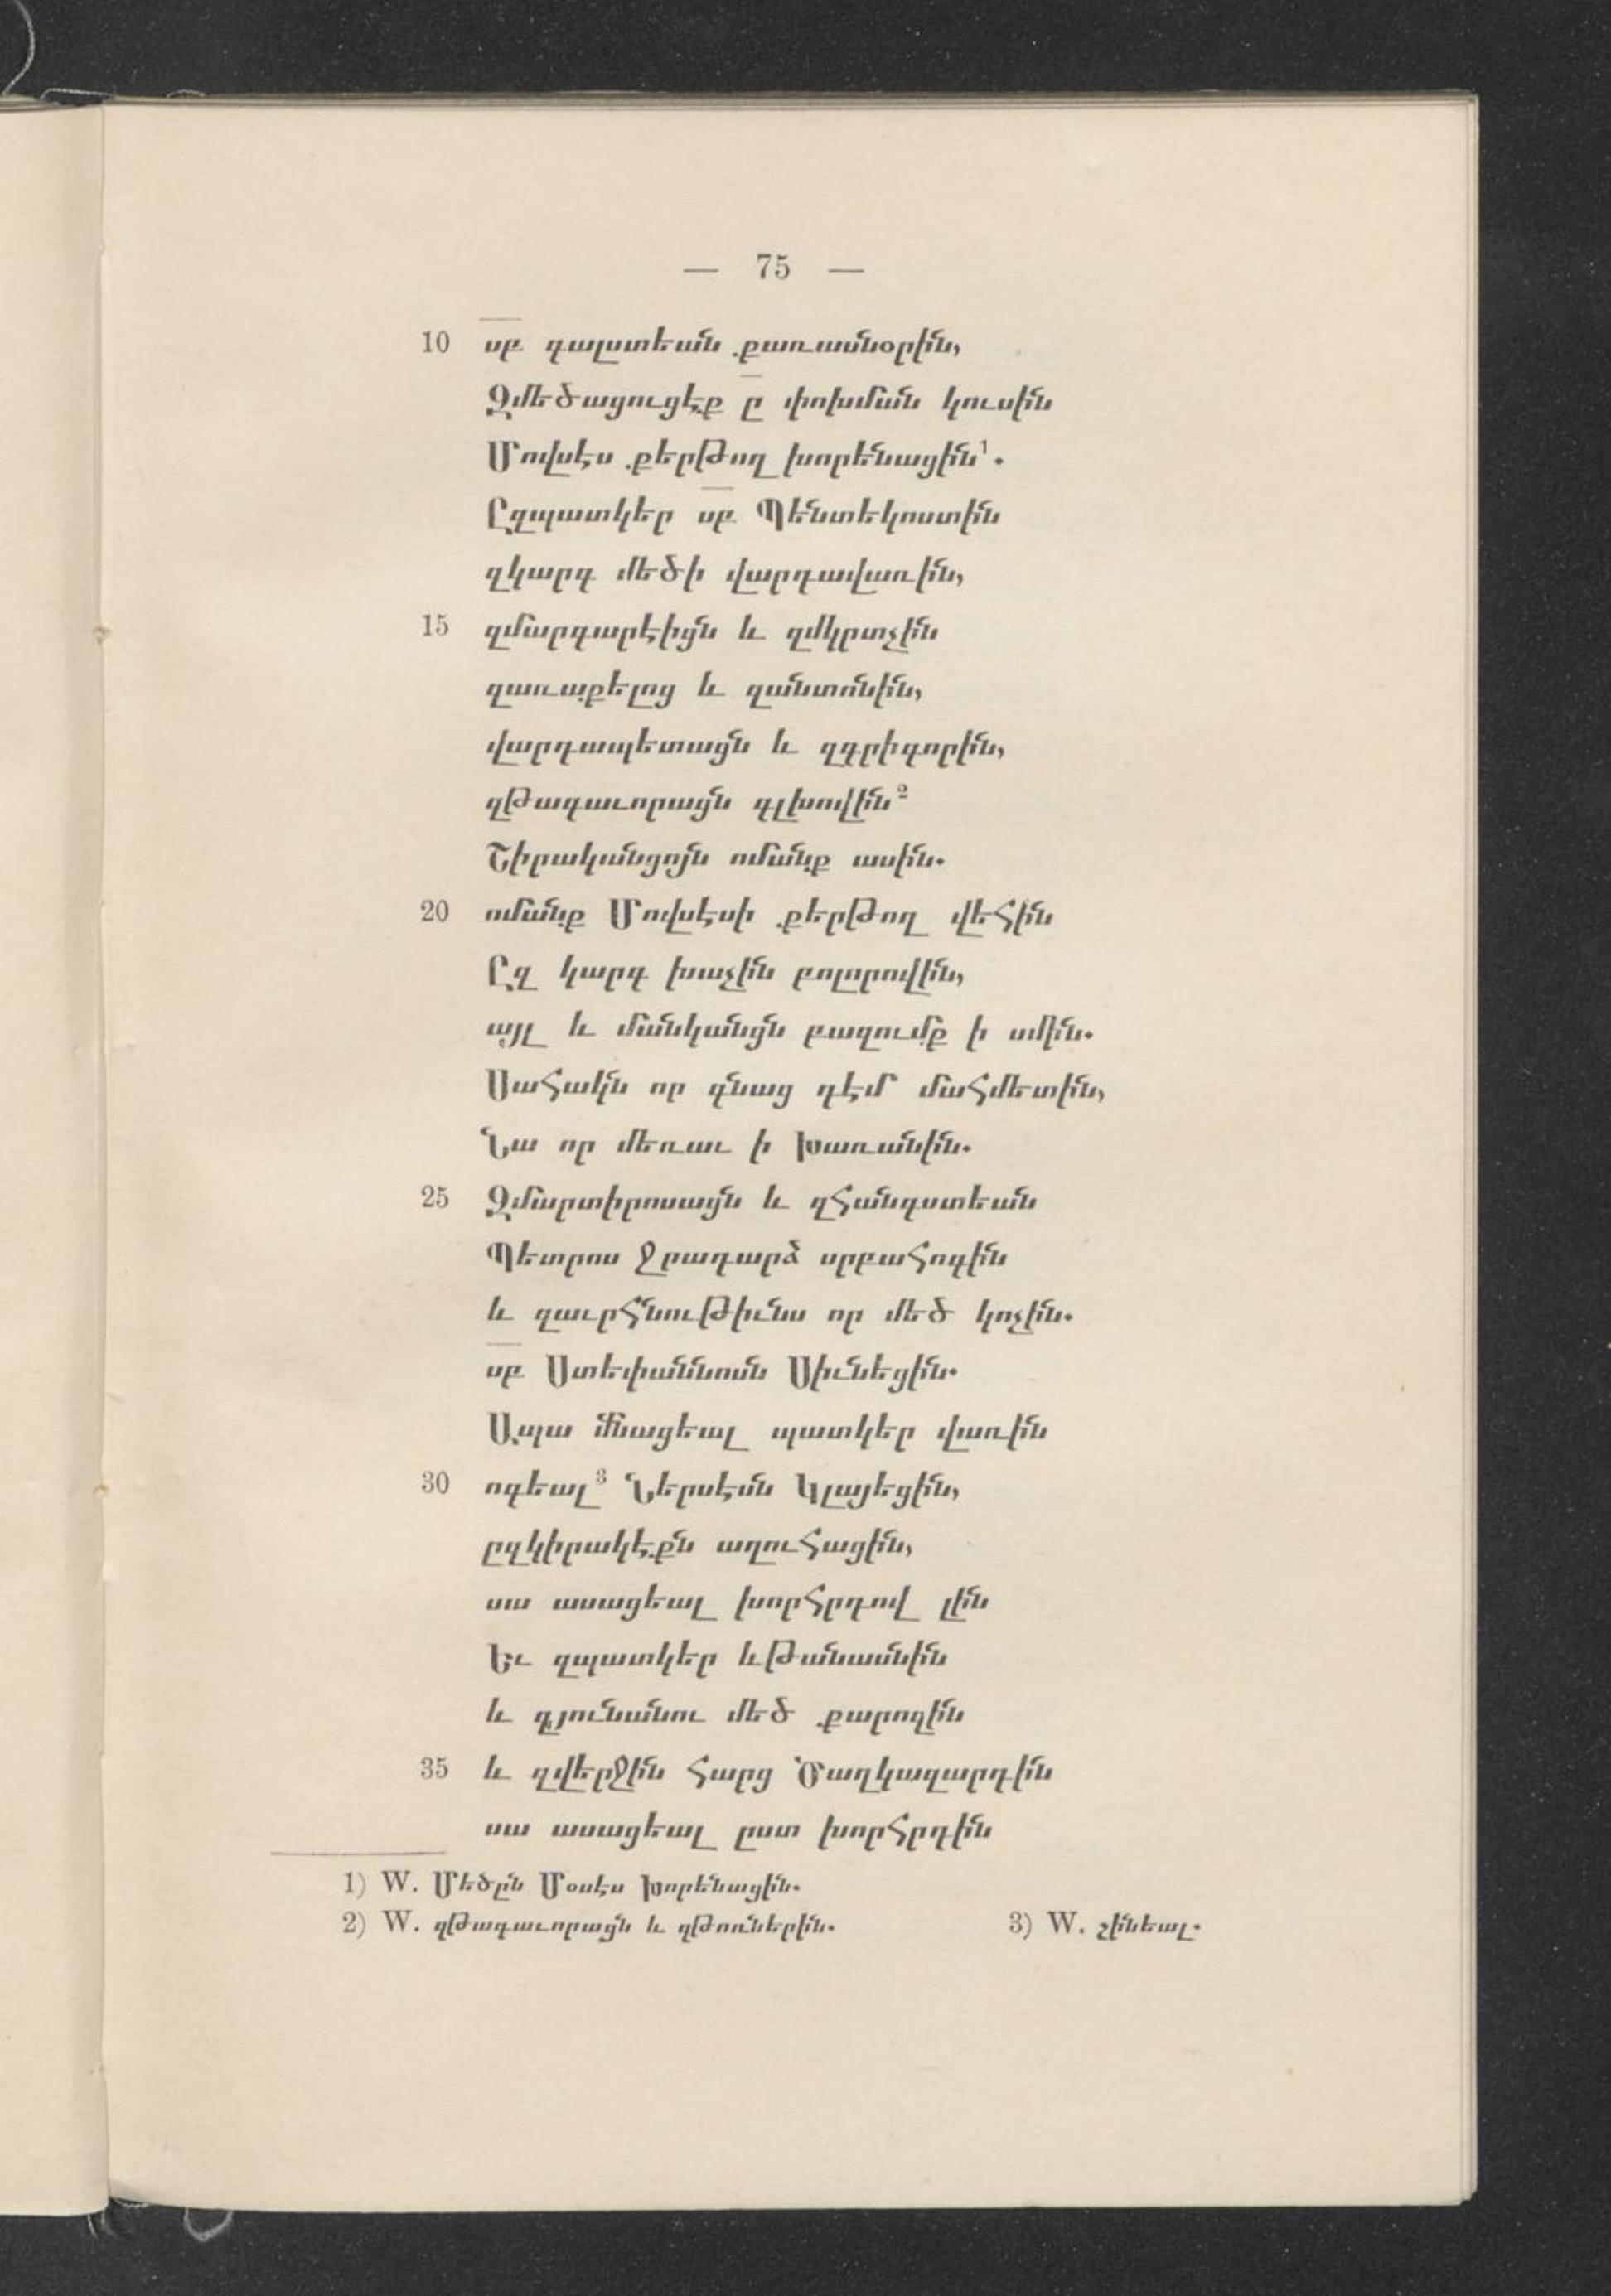 — 75 —
10 սբ գալստեան քառասնօրին,
Զմեծացուցէք ը փոխման կուսին
Մովսէս քերթող խորենացին¹.
Ըզպատկեր սբ Պենտեկոստին
զկարգ մեծի վարդավառին,
15 զմարգարէիցն և զմկրտչին
զառաքելոց և զանտոնին,
վարդապետացն և զգրիգորին,
զթագաւորացն գլխովին²
Շիրականցոյն ոմանք ասին.
20 ոմանք Մովսէսի քերթող վեհին
Ըզ կարգ խաչին բոլորովին,
այլ և մանկանցն բազումք ի սմին.
Սահակն որ գնաց դէմ մահմետին,
Նա որ մեռաւ ի Խառանին.
25 Զմարտիրոսացն և զհանգստեան
Պետրոս Ջրադարձ սրբահոգին
և զաւրհնութիւնս որ մեծ կոչին.
սբ Ստեփաննոսն Սիւնեցին.
Ապա մնացեալ պատկեր վառին
30 ոգեալ³ Ներսէսն Կլայեցին,
ըզկիրակէքն աղուհացին,
սա ասացեալ խորհրդով լին
Եւ զպատկեր ևթանասնին
և զյունանու մեծ քարոզին
35 և զվերջին հարց Ծաղկազարդին
սա ասացեալ ըստ խորհրդին
1) W. Մեծըն Մօսէս Խորենացին.
2) W. զթագաւորացն և զթոռներին. 3) W. շինեալ.